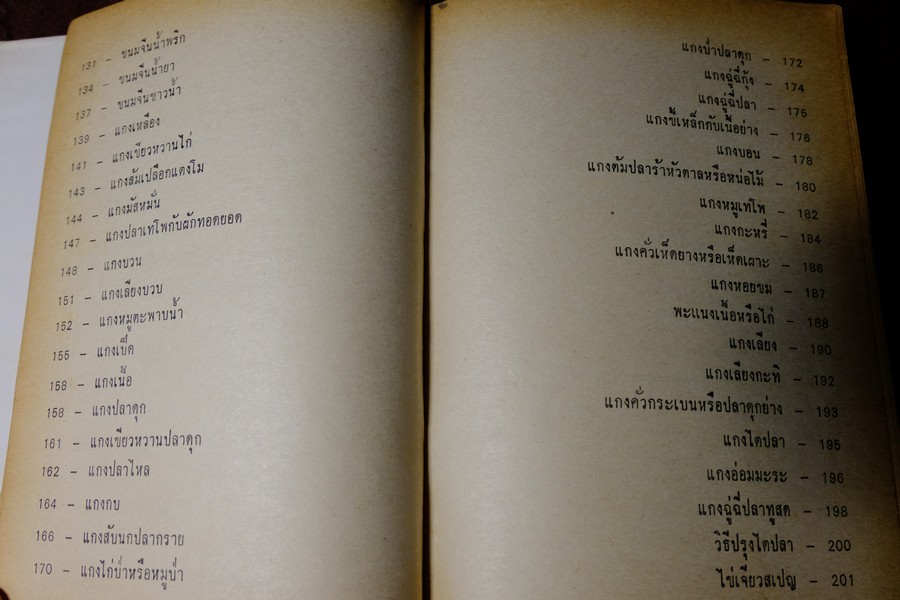 131 – ขนมจีนน้ำพริก
134 – ขนมจีนน้ำยา
137 – ขนมจีนซาวน้ำ
139 – แกงเหลือง
141 – แกงเขียวหวานไก่
143 – แกงส้มเปลือกแตงโม
144 – แกงมัสหมั่น
147 – แกงปลาเทโพกับผักทอดยอด
148 – แกงบวน
151 – แกงเลียงบวบ
152 – แกงหมูตะพาบน้ำ
155 – แกงเป็ด
158 – แกงเนื้อ
158 – แกงปลาดุก
161 – แกงเขียวหวานปลาดุก
162 – แกงปลาไหล
164 – แกงกบ
166 – แกงสับนกปลากราย
170 – แกงไก่ป่าหรือหมูป่า
แกงป่าปลาดุก – 172
แกงฉู่ฉี่กุ้ง – 174
แกงฉู่ฉี่ปลา – 175
แกงขี้เหล็กกับเนื้อย่าง – 176
แกงบอน – 178
แกงต้มปลาร้าหัวตาลหรือหน่อไม้ – 180
แกงหมูเทโพ – 182
แกงกะหรี่ – 184
แกงคั่วเห็ดยางหรือเห็ดเผาะ – 186
แกงหอยขม – 187
พะแนงเนื้อหรือไก่ – 188
แกงเลียง – 190
แกงเลียงกะทิ – 192
แกงคั่วกระเบนหรือปลาดุกย่าง – 193
แกงไตปลา – 195
แกงอ่อมมะระ – 196
แกงฉู่ฉี่ปลาทูสด – 198
วิธีปรุงไตปลา – 200
ไข่เจียวสเปญ – 201